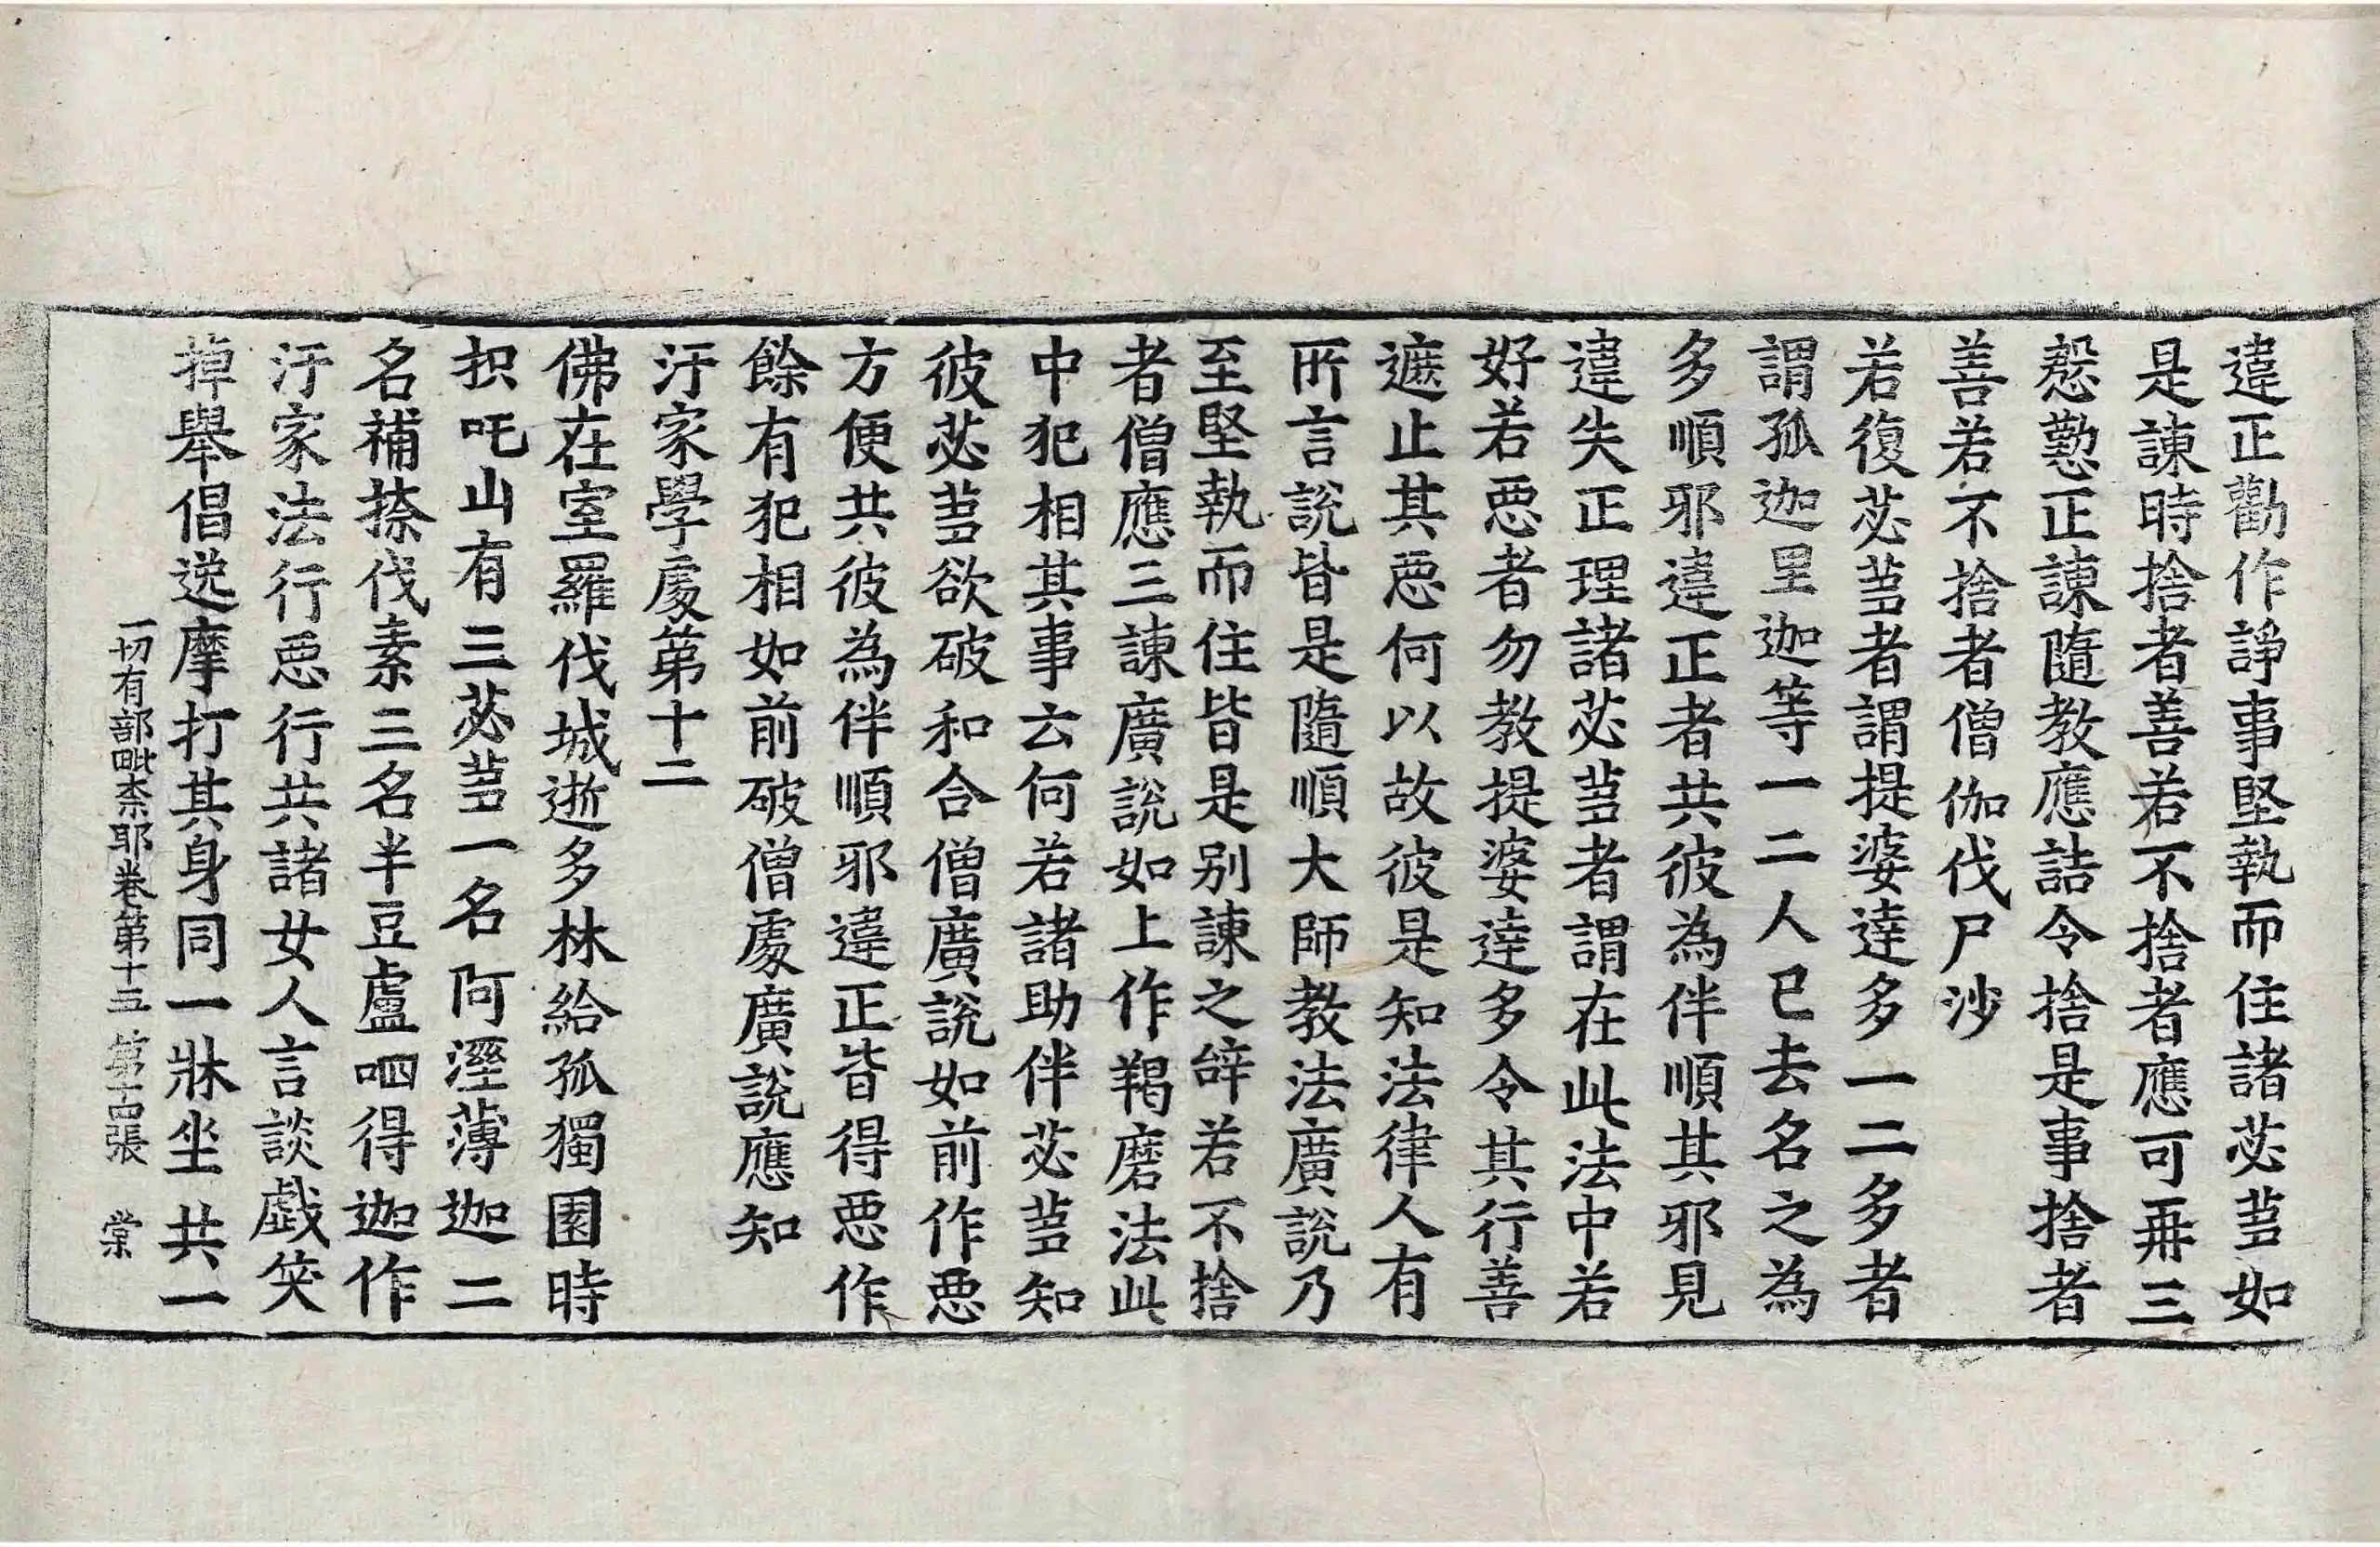 違正勸作諍事堅執而住諸苾芻如
是諫時捨者善若不捨者應可再三
慇懃正諫隨教應詰令捨是事捨者
善若不捨者僧伽伐尸沙
若復苾芻者謂提婆達多一二多者
謂孤迦里迦等一二人已去名之為
多順邪違正者共彼為伴順其邪見
違失正理諸苾芻者謂在此法中若
好若惡者勿教提婆達多令其行善
遮止其惡何以故彼是知法律人有
所言說皆是隨順大師教法廣說乃
至堅執而住皆是別諫之辝若不捨
者僧應三諫廣說如上作羯磨法此
中犯相其事云何若諸助伴苾芻知
彼苾芻欲破和合僧廣說如前作惡
方便共彼為伴順邪違正皆得惡作
餘有犯相如前破僧處廣說應知
汙家學處第十二
佛在室羅伐城逝多林給孤獨園時
抧吒山有三苾芻一名阿溼薄迦二
名補捺伐素三名半豆盧呬得迦作
汙家法行惡行共諸女人言談戲笑
掉舉倡逸摩打其身同一牀坐共一
一切有部毗柰耶卷第十五 第十四張 棠